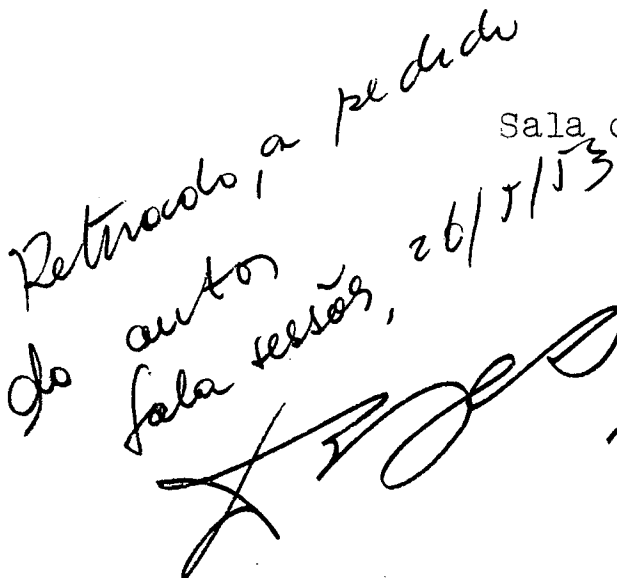 Retirado, a pedido
do autor
Sala sessões, 26/5/53
Sala